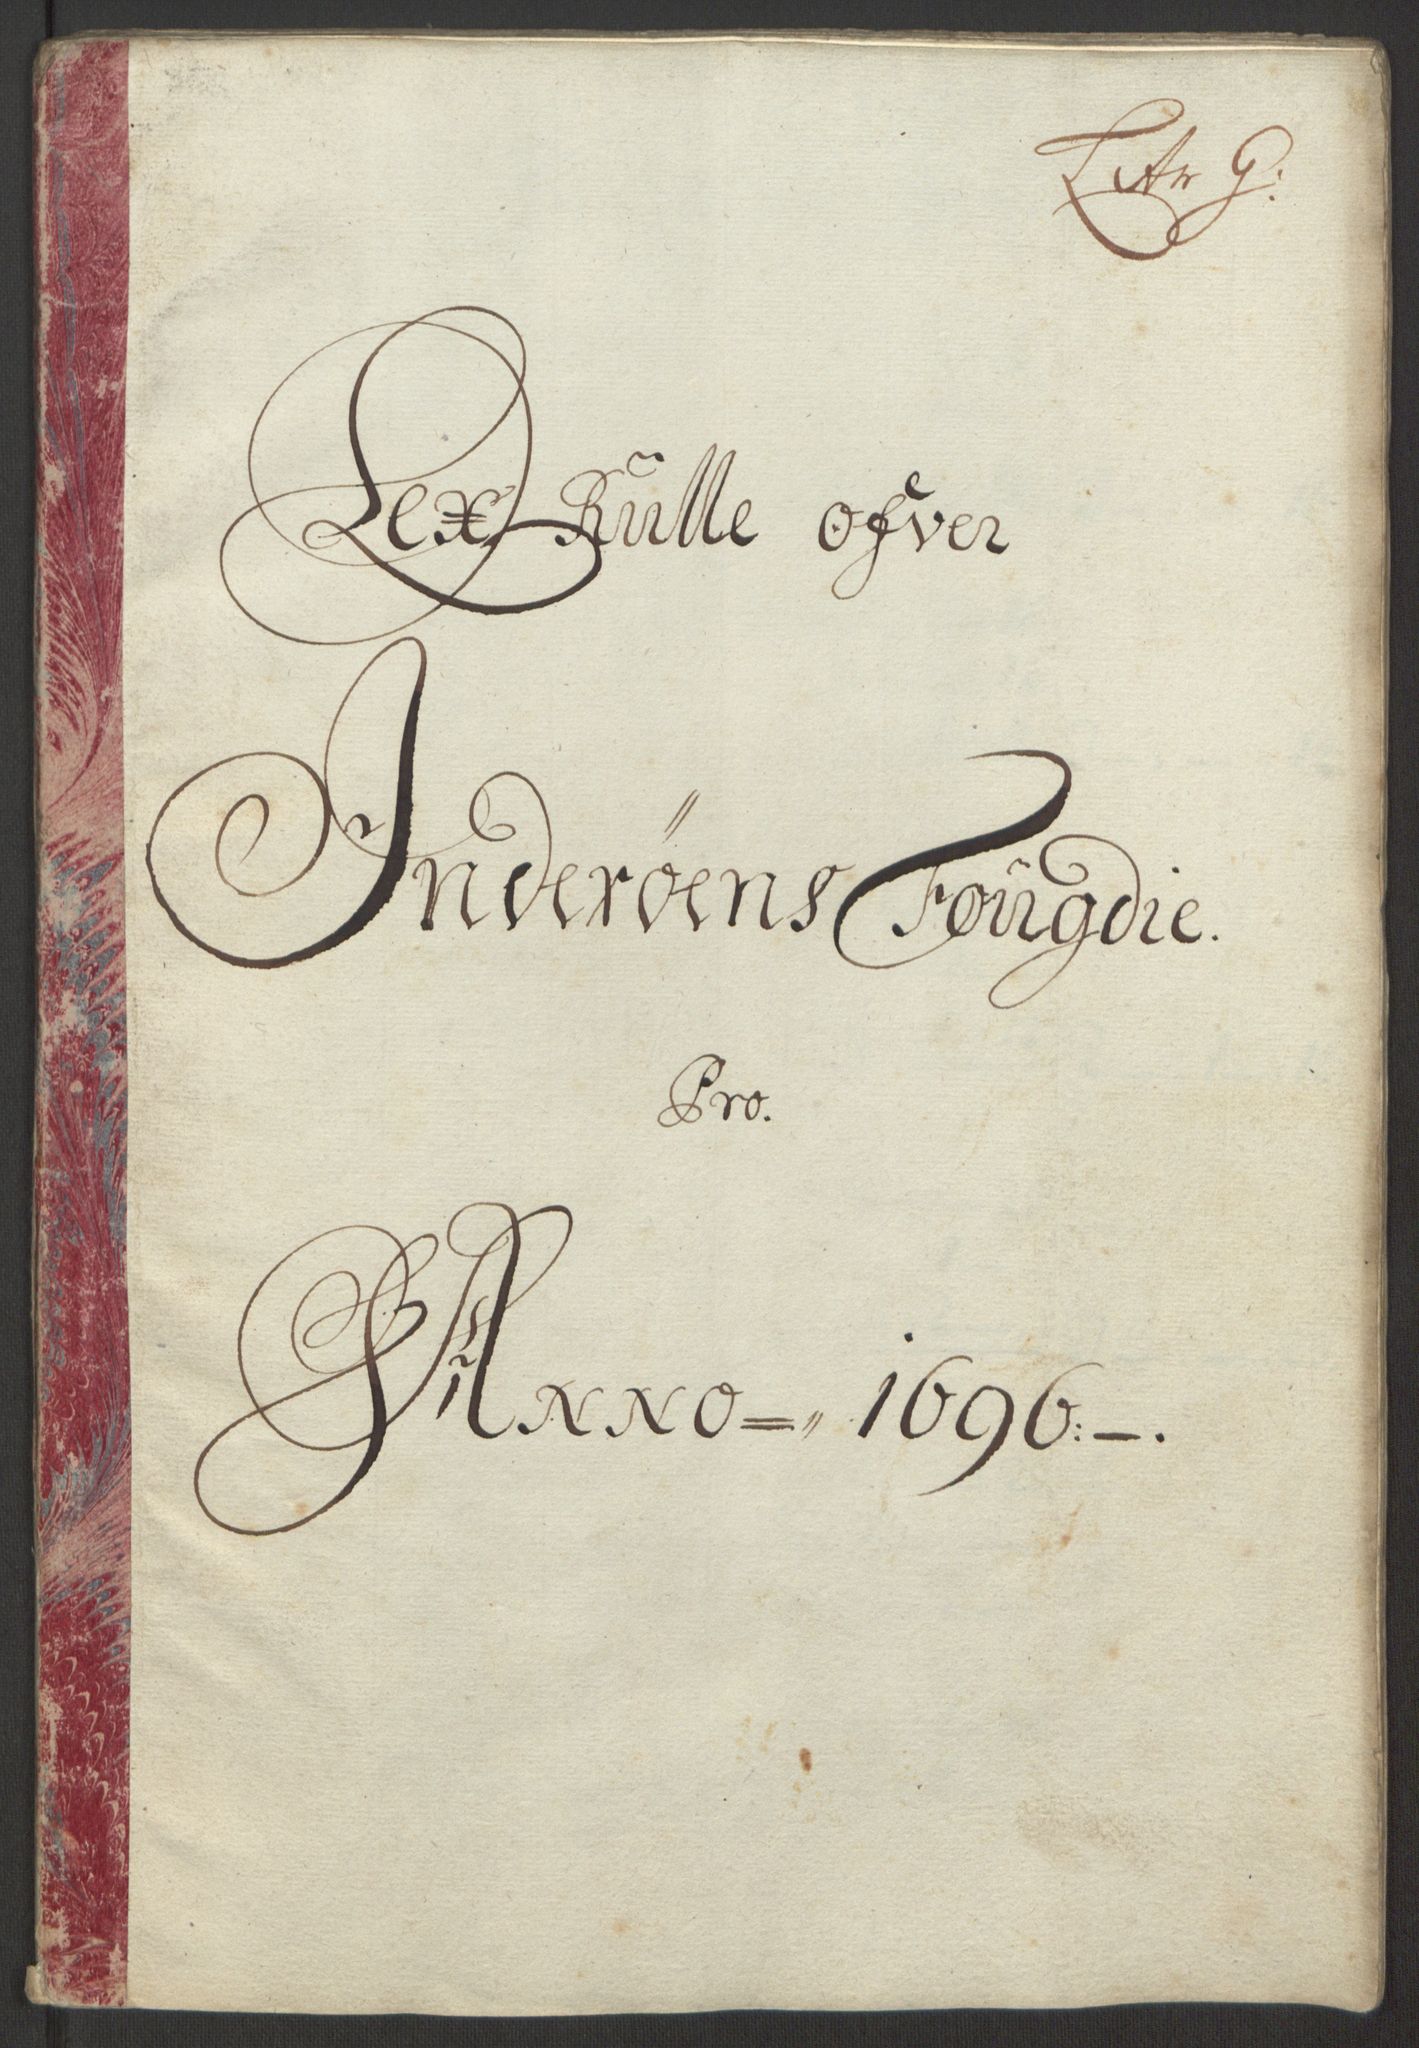 Litr G:
Lex Rulle ofver
Inderøens Fougdie.
Pro.
Anno = 1696:-.